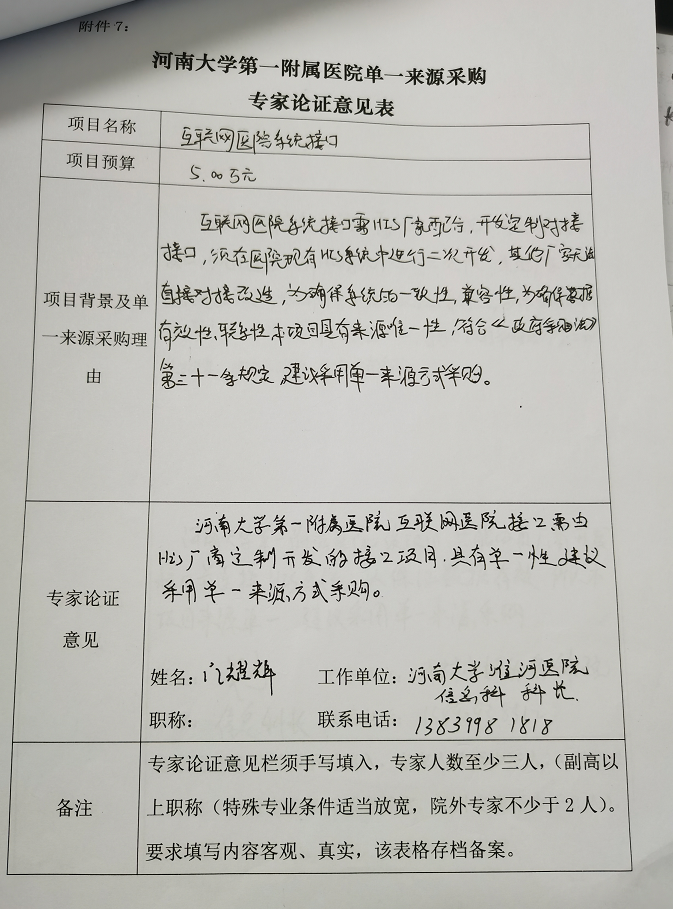 附件 7：
河南大学第一附属医院单一来源采购
专家论证意见表
项目名称
互联网医院系统接口
项目预算
5.00万元
项目背景及单
一来源采购理
由
互联网医院系统接口需HIS厂商配合，开发定制对接
接口，须在医院现有HIS系统中进行二次开发，其他厂家无法
直接对接改造，为确保系统的一致性，兼容性，为确保数据
有效性、联系性，本项目具有来源唯一性，符合《政府采购法》
第三十一条规定，建议采用单一来源方式采购。
专家论证
意见
河南大学第一附属医院互联网医院接口需由
HIS厂商定制开发的接口项目，具有单一性，建议
采用单一来源方式采购。
姓名：门耀辉
工作单位：河南大学淮河医院
信息科 科长
职称：
联系电话：13839981818
备注
专家论证意见栏须手写填入，专家人数至少三人，（副高以
上职称（特殊专业条件适当放宽，院外专家不少于 2 人）。
要求填写内容客观、真实，该表格存档备案。